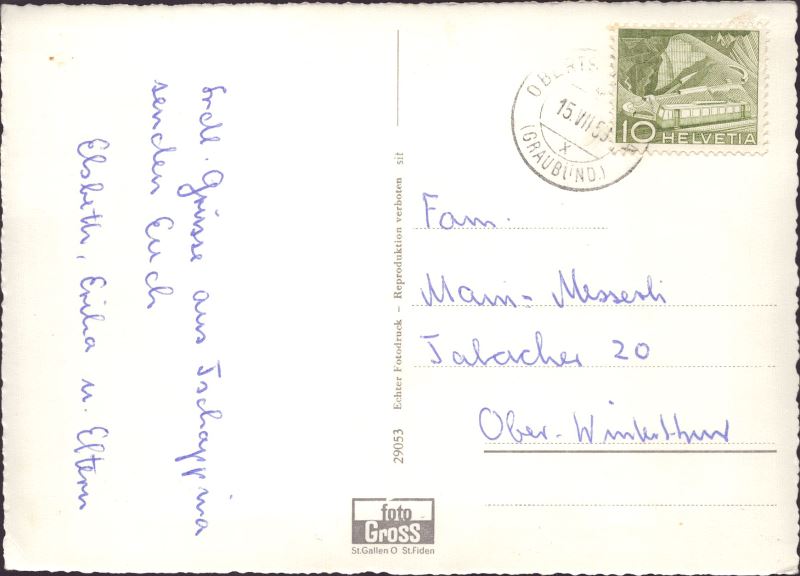 Frdl. Grüsse aus Tschappina
senden Euch
Elsbeth, Erika u. Eltern
29053 Echter Fotodruck – Reproduktion verboten sif
foto
Gross
St.Gallen O St.Fiden
15.VII.5
X
(GRAUBÜND.)
10 HELVETIA
Fam.
Messerli
Tabacher 20
Ober-Winterthur